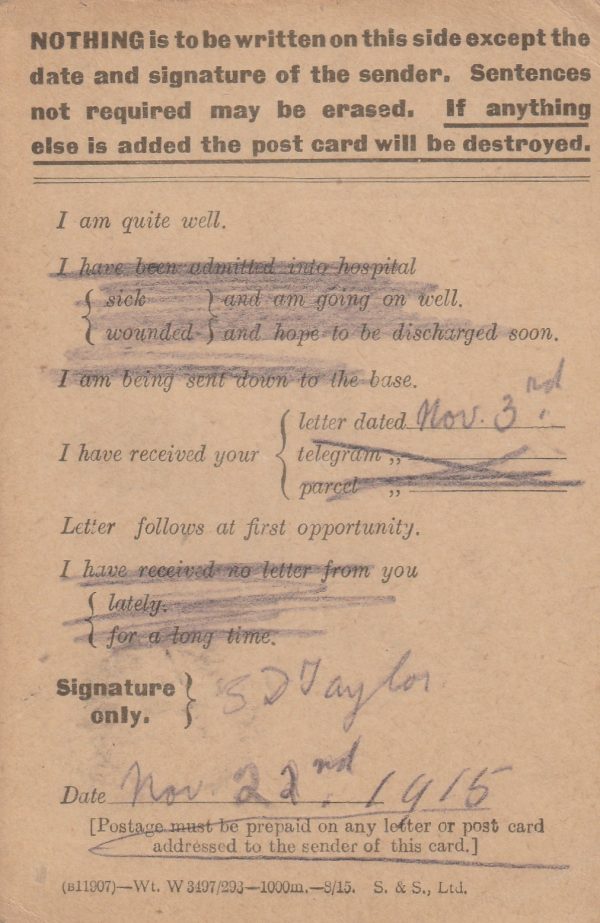 NOTHING is to be written on this side except the
date and signature of the sender. Sentences
not required may be erased. If anything
else is added the post card will be destroyed.
I am quite well.
I have been admitted into hospital
{ sick } and am going on well.
{ wounded } and hope to be discharged soon.
I am being sent down to the base.
letter dated Nov. 3rd.
I have received your { telegram ,,
parcel ,,
Letter follows at first opportunity.
I have received no letter from you
{ lately.
{ for a long time.
Signature
only. } S D Taylor
Date Nov. 22nd. 1915
[Postage must be prepaid on any letter or post card
addressed to the sender of this card.]
(B11907)—Wt. W3497/293—1000m.—8/15. S. & S., Ltd.